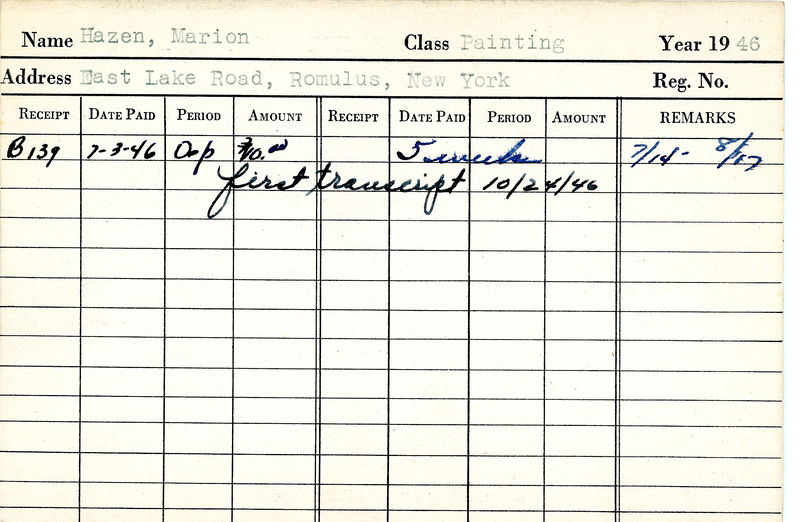 Name Hazen, Marion Class Painting Year 19 46
Address East Lake Road, Romulus, New York Reg. No.
RECEIPT DATE PAID PERIOD AMOUNT RECEIPT DATE PAID PERIOD AMOUNT REMARKS
B139 7-3-46 Dep 5 weeks 7/14- 8/17
first transcript 10/24/46